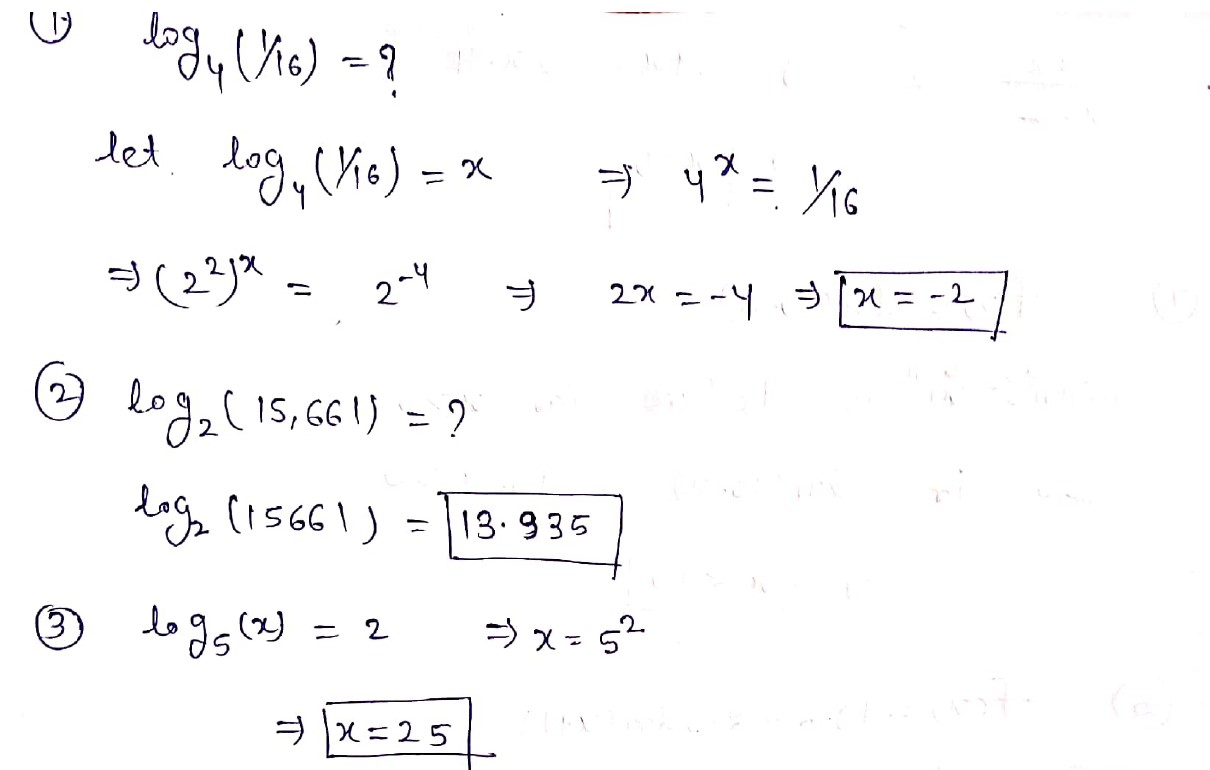 ① log₄(1/16) = ?
let log₄(1/16) = x ⇒ 4ˣ = 1/16
⇒ (2²)ˣ = 2⁻⁴ ⇒ 2x = -4 ⇒ x = -2
② log₂(15,661) = ?
log₂(15661) = 13.935
③ log₅(x) = 2 ⇒ x = 5²
⇒ x = 25